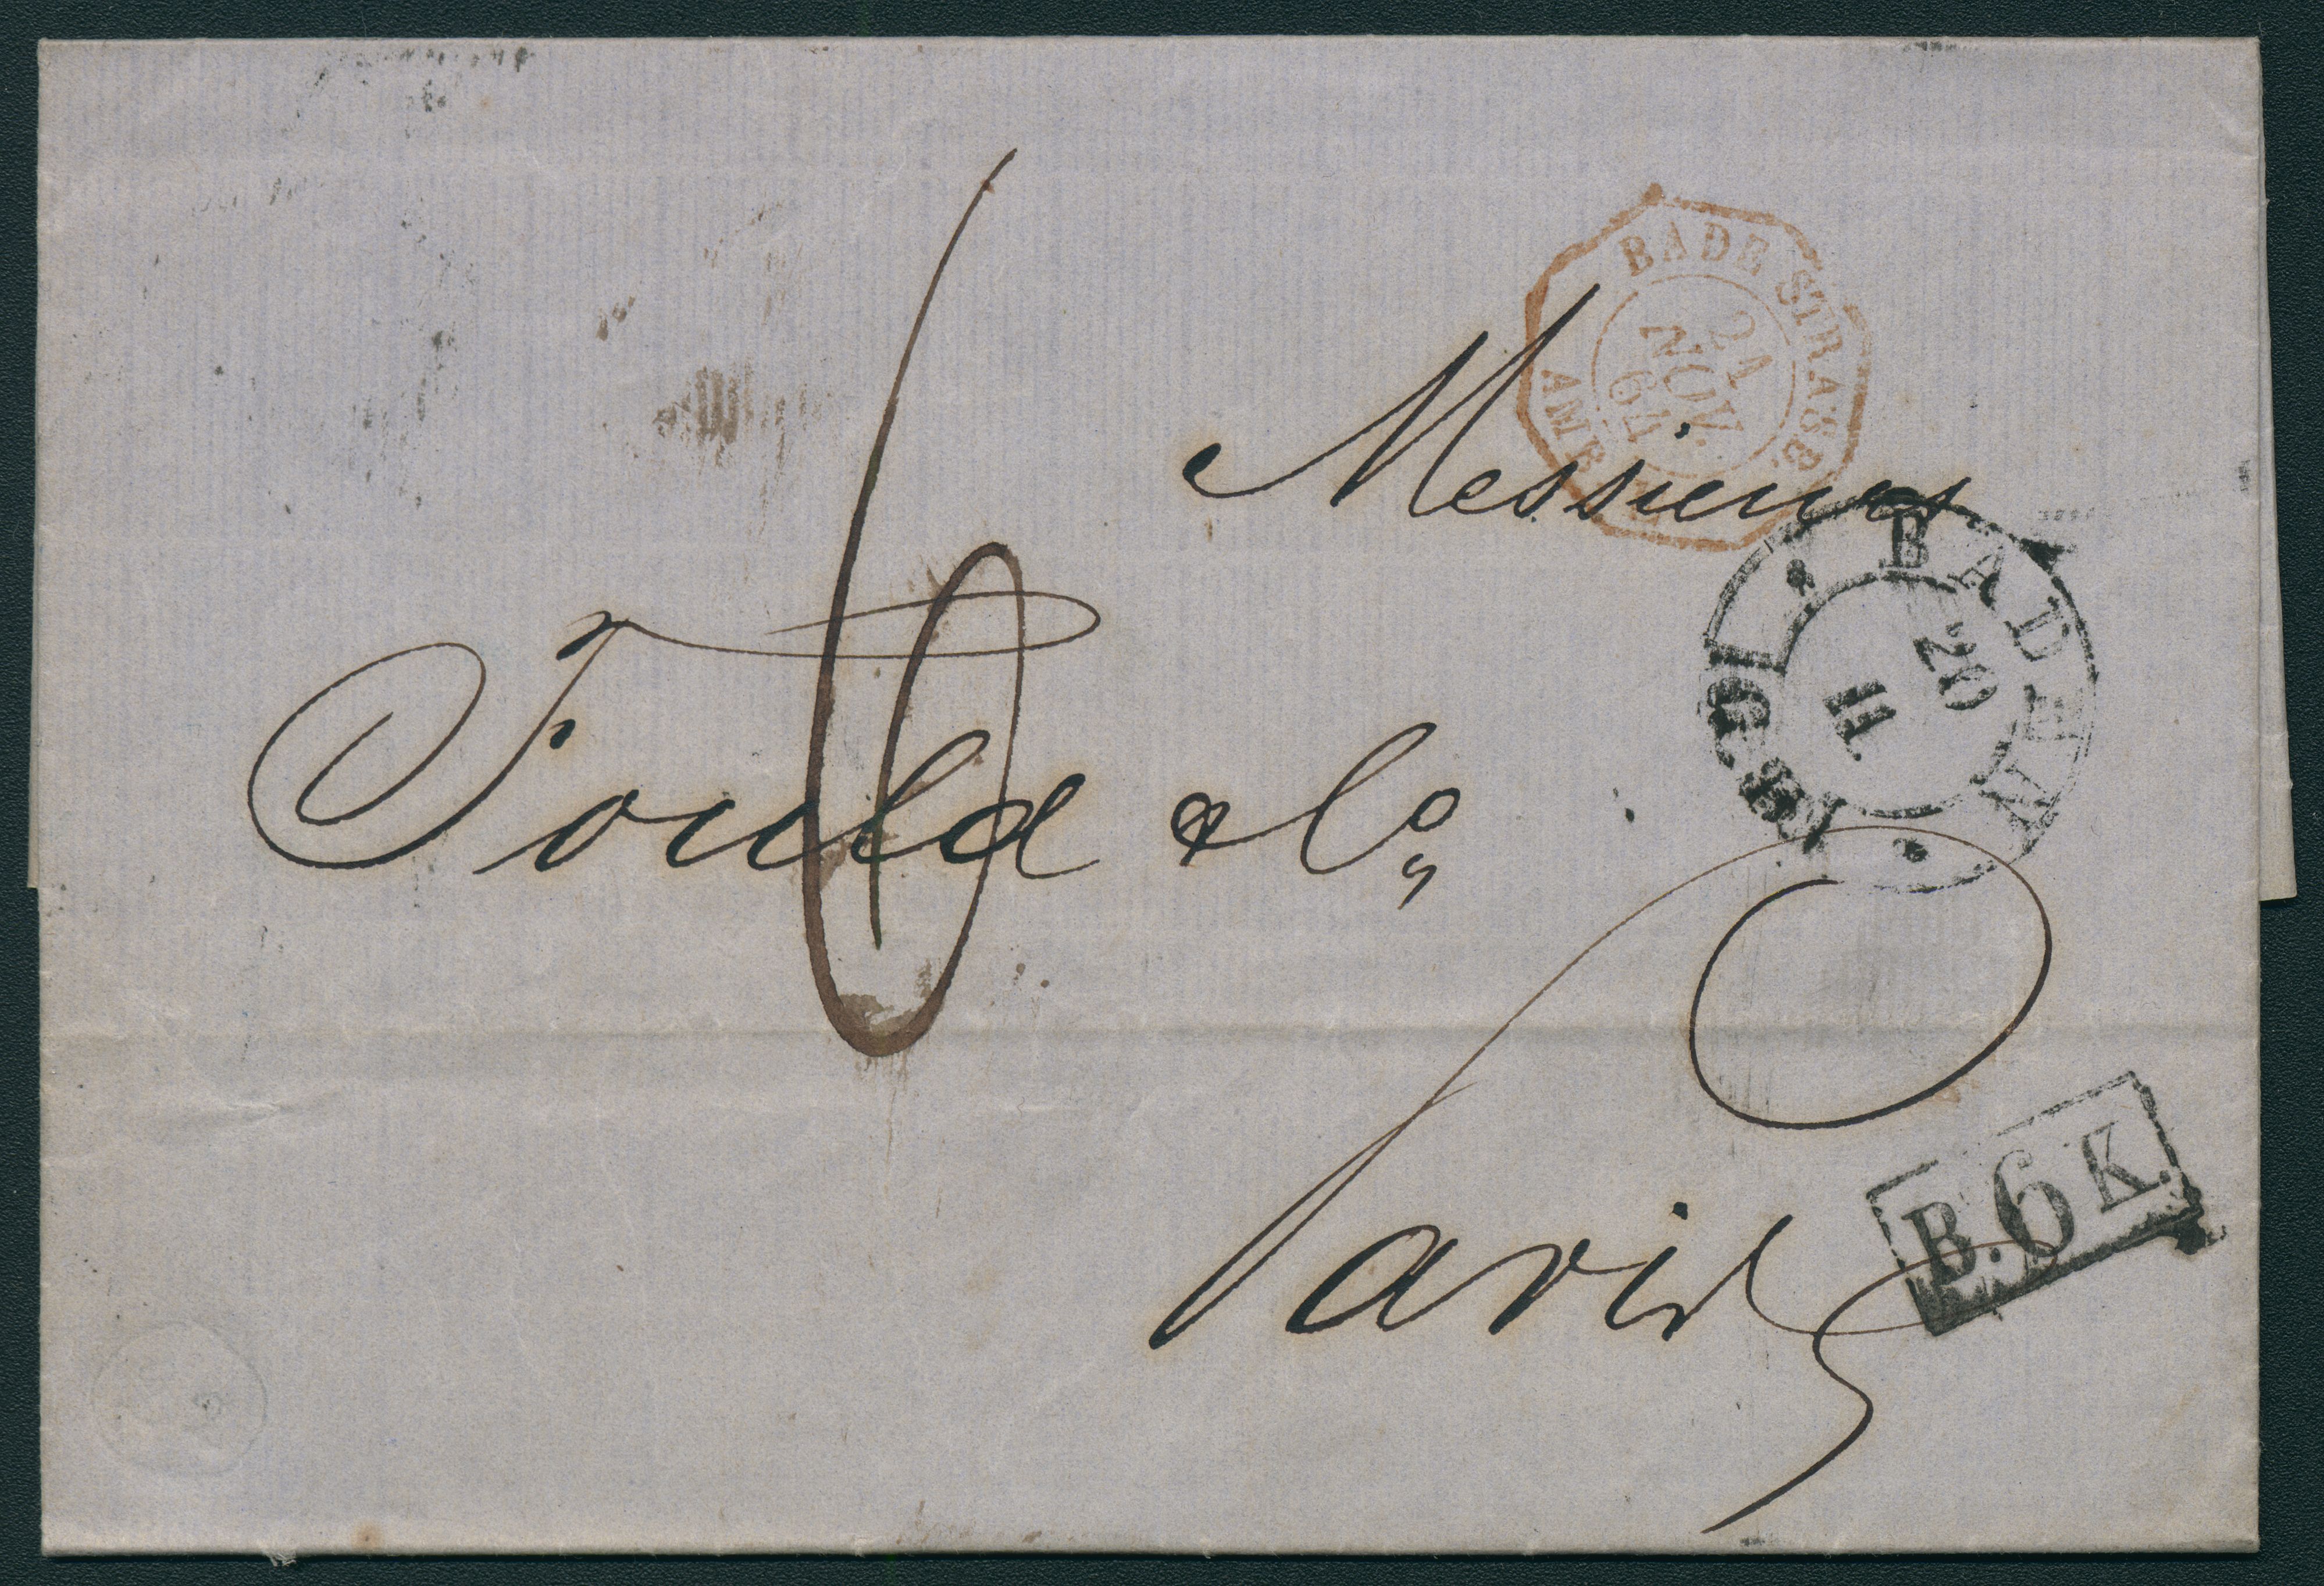 BADE STRASB.
21
NOV.
64
Messieurs
BADEN
20
11
6
Fould & Co
Paris
B.6K.